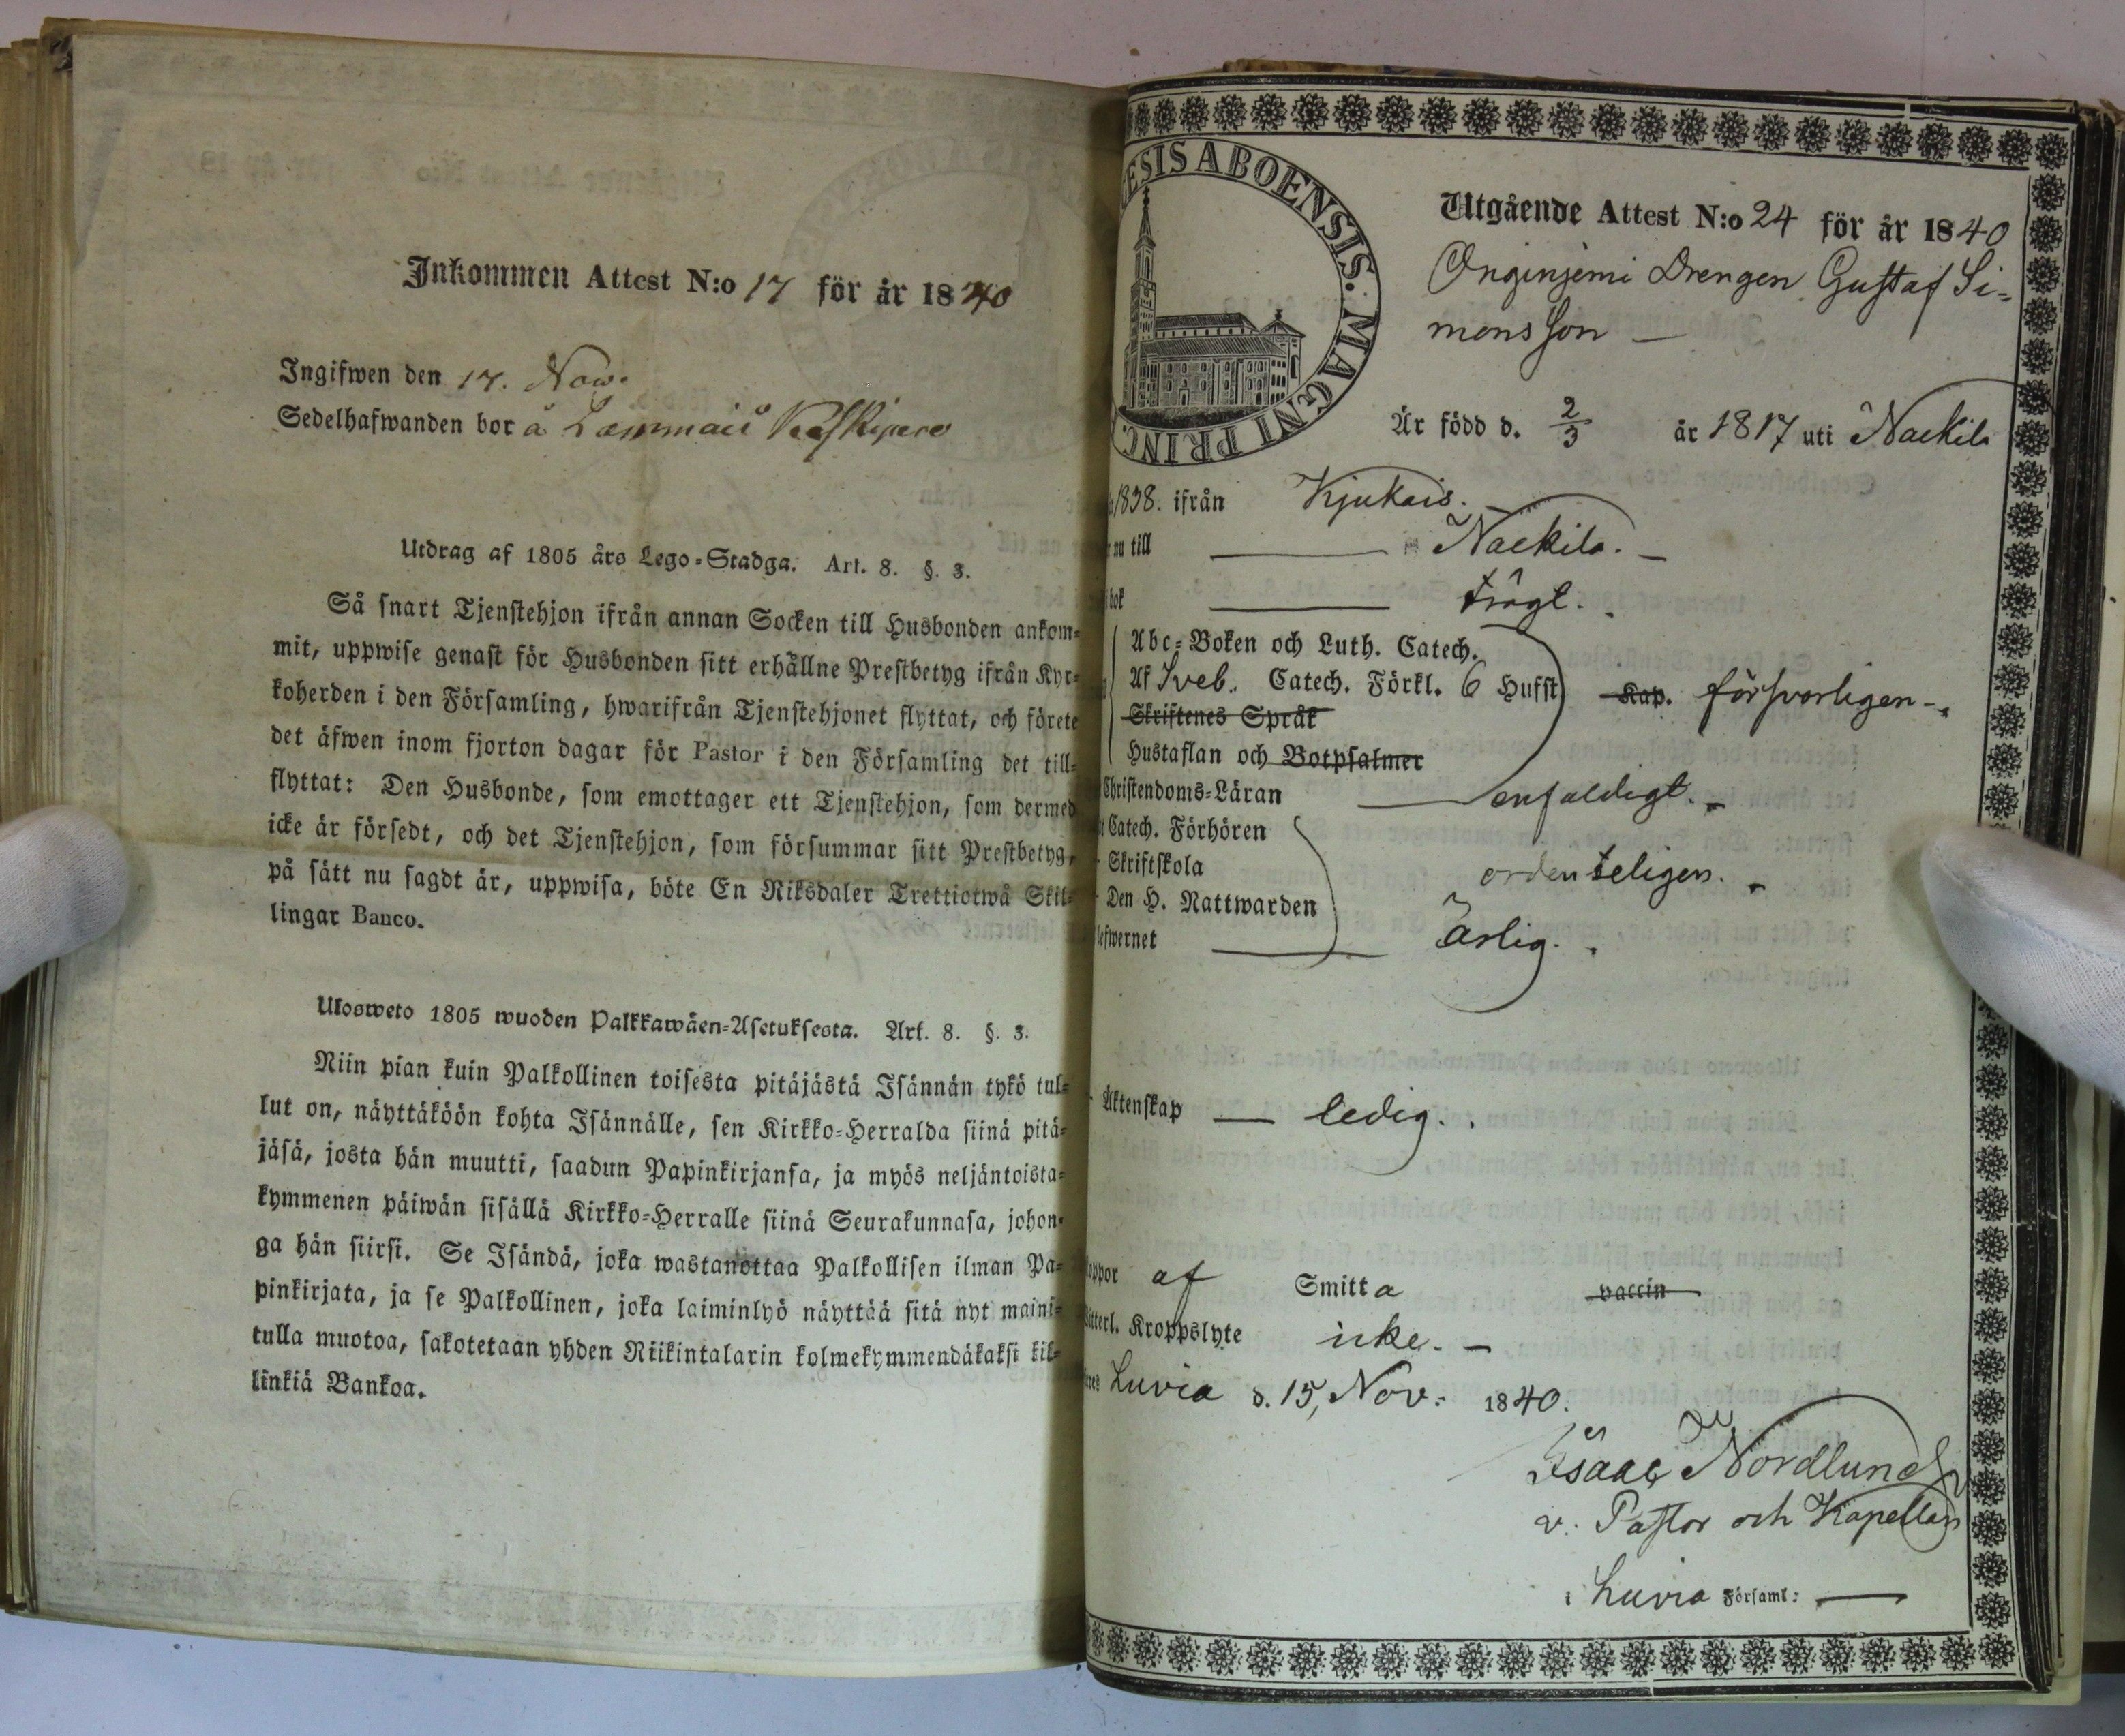 Inkommen Attest N:o 17 för år 1840
Ingifwen den 17. Now.
Sedelhafwanden bor å
Utdrag af 1805 års Lego-Stadga. Art. 8. §. 3.
Så snart Tjenstehjon ifrån annan Socken till Husbonden ankom-
mit, uppwise genast för Husbonden sitt erhållne Prestbetyg ifrån Kyr-
koherden i den Församling, hwarifrån Tjenstehjonet flyttat, och förete
det äfwen inom fjorton dagar för Pastor i den Församling det till-
flyttat: Den Husbonde, som emottager ett Tjenstehjon, som dermed
icke är försedt, och det Tjenstehjon, som försummar sitt Prestbetyg,
på sätt nu sagdt är, uppwisa, böte En Riksdaler Trettiotwå Skil-
lingar Banco.
Ulosweto 1805 wuoden Palkkawäen-Asetuksesta. Art. 8. §. 3.
Niin pian kuin Palkollinen toisesta pitäjästä Isännän tykö tul-
lut on, näyttäköön kohta Isännälle, sen Kirkko-Herralda siinä pitä-
jäsä, josta hän muutti, saadun Papinkirjansa, ja myös neljäntoista-
kymmenen päiwän sisällä Kirkko-Herralle siinä Seurakunnasa, johon-
ga hän siirsi. Se Isändä, joka wastanottaa Palkollisen ilman Pa-
pinkirjata, ja se Palkollinen, joka laiminlyö näyttää sitä nyt maini-
tulla muotoa, sakotetaan yhden Riikintalarin kolmekymmendäkaksi kil-
linkiä Bankoa.
ESIS ABOENSIS. MAGNI PRINC.
Utgående Attest N:o 24 för år 1840
Drengen Gustaf Si-
monsson
Är född d. 2/3 år 1817 uti Nackila
1838. ifrån Kjukais.
nu till Nackila.
bok trögt.
Abc-Boken och Luth. Catech.
Af Sveb. Catech. Förkl. 6 Hufst Kap. försvarligen
Skriftenes Språk
Hustaflan och Botpsalmer
Christendoms-Läran enfaldigt.
Catech. Förhören
Skriftskola ordenteligen.
Den H. Nattwarden
lefwernet ärlig.
Äktenskap ledig.
koppor af Smitta vaccin
Kroppslyte icke.
Luvia d. 15, Nov: 1840.
Isaac Nordlund
v. Pastor och Kapellan
i Luvia Församl: